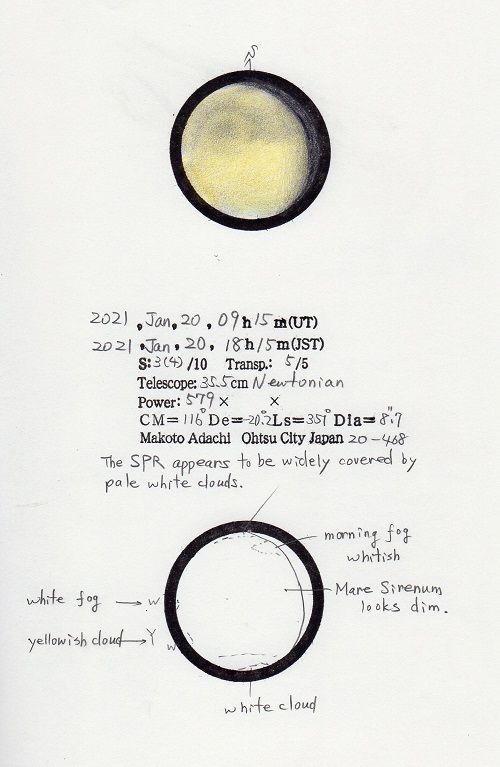 S
2021, Jan, 20, 09h15m(UT)
2021, Jan, 20, 18h15m(JST)
S: 3(4)/10 Transp.: 5/5
Telescope: 35.5cm Newtonian
Power: 579× ×
CM=116° De=-20.2 Ls=351° Dia=8".7
Makoto Adachi Ohtsu City Japan 20-468
The SPR appears to be widely covered by
pale white clouds.
morning fog
whitish
white fog → w
Mare Sirenum
looks dim.
yellowish cloud → Y
w
white cloud